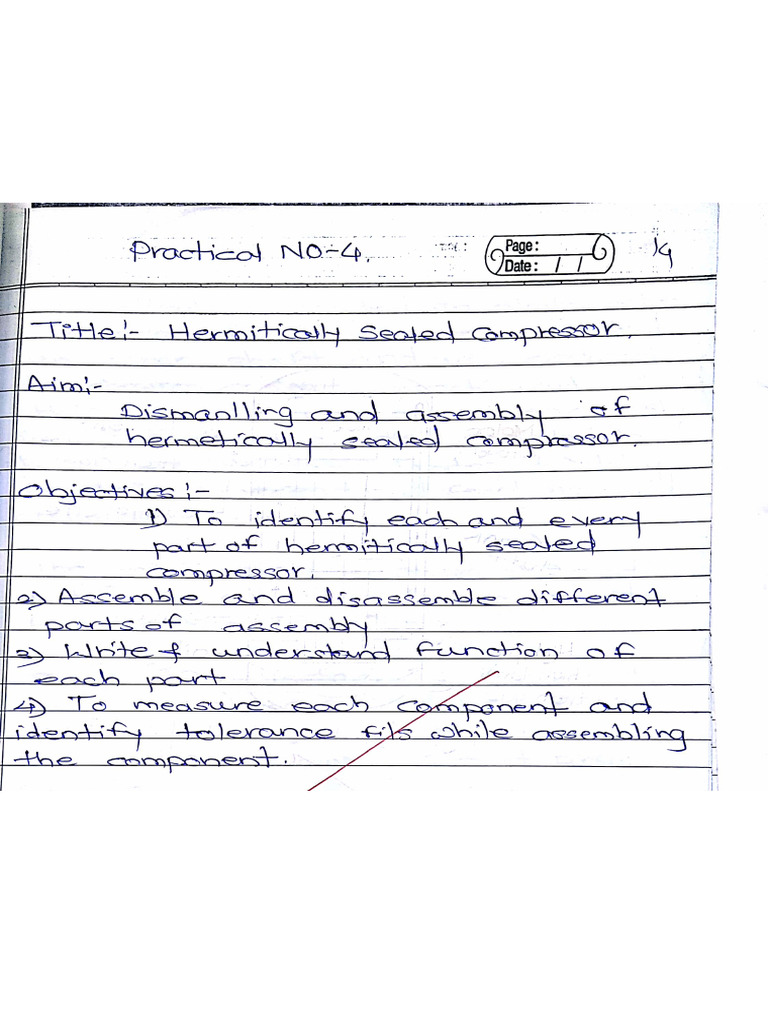 Practical NO-4.
Page:
Date: / /
Title:- Hermitically Sealed Compressor.
Aim:-
Dismanlling and assembly of
hermetically sealed compressor.
Objectives:-
1) To identify each and every
part of hermitically sealed
compressor.
2) Assemble and disassemble different
parts of assembly
3) Write & understand function of
each part
4) To measure each component and
identify tolerance fits while assembling
the component.